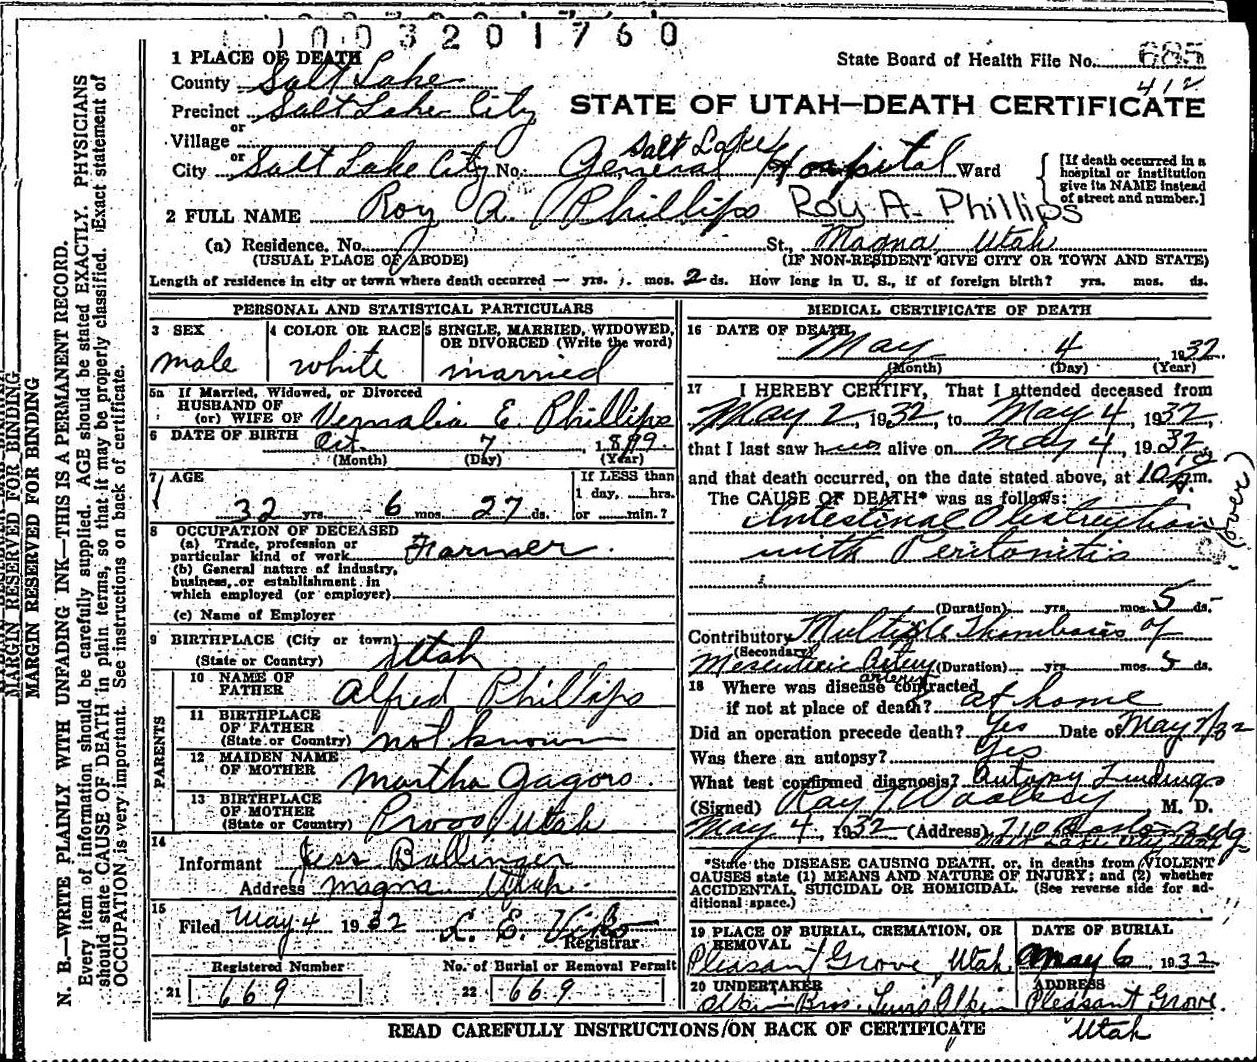 1003201760
1 PLACE OF DEATH
State Board of Health File No. 685
County Salt Lake
412
Precinct Salt Lake City
STATE OF UTAH—DEATH CERTIFICATE
or
Village
Salt Lake
or
City Salt Lake City No. General Hospital Ward
[If death occurred in a
hospital or institution
give its NAME instead
of street and number.]
2 FULL NAME Roy A. Phillips Roy A. Phillips
(a) Residence. No. St., Magna Utah
(USUAL PLACE OF ABODE) (IF NON-RESIDENT GIVE CITY OR TOWN AND STATE)
Length of residence in city or town where death occurred — yrs. mos. 2 ds. How long in U. S., if of foreign birth? yrs. mos. ds.
PERSONAL AND STATISTICAL PARTICULARS
3 SEX
male
4 COLOR OR RACE
white
5 SINGLE, MARRIED, WIDOWED,
OR DIVORCED (Write the word)
married
5a If Married, Widowed, or Divorced
HUSBAND OF
(or) WIFE OF Vernalia E. Phillips
6 DATE OF BIRTH Oct. 7 1899
(Month) (Day) (Year)
7 AGE
32 yrs 6 mos. 27 ds.
If LESS than
1 day, hrs.
or min.?
8 OCCUPATION OF DECEASED
(a) Trade, profession or
particular kind of work Farmer.
(b) General nature of industry,
business, or establishment in
which employed (or employer)
(c) Name of Employer
9 BIRTHPLACE (City or town)
(State or Country) Utah
PARENTS
10 NAME OF
FATHER Alfred Phillips
11 BIRTHPLACE
OF FATHER
(State or Country) not known
12 MAIDEN NAME
OF MOTHER Martha Gagoro.
13 BIRTHPLACE
OF MOTHER
(State or Country) Provo, Utah
14
Informant Jess Ballinger
Address Magna Utah.
15
Filed May 4 1932 L. E. Viko
Registrar
Registered Number No. of Burial or Removal Permit
21 669 22 669
MEDICAL CERTIFICATE OF DEATH
16 DATE OF DEATH
May 4 1932
(Month) (Day) (Year)
17 I HEREBY CERTIFY, That I attended deceased from
May 2, 1932, to May 4, 1932,
that I last saw him alive on May 4, 1932,
and that death occurred, on the date stated above, at 10 10 p.m.
The CAUSE OF DEATH* was as follows:
Intestinal Obstruction
with Peritonitis
(over)
(Duration) yrs. mos. 5 ds.
Contributory Multiple Thombosis of
(Secondary)
Mesenteric Artery (Duration) yrs. mos. 5 ds.
artery
18 Where was disease contracted
if not at place of death? at home
Did an operation precede death? Yes Date of May 2/32
Was there an autopsy? Yes
What test confirmed diagnosis? Autopsy Findings
(Signed) Ray T Woolsey M. D.
May 4, 1932 (Address) 710 Boston Bldg
Salt Lake City Utah
*State the DISEASE CAUSING DEATH, or, in deaths from VIOLENT
CAUSES state (1) MEANS AND NATURE OF INJURY; and (2) whether
ACCIDENTAL, SUICIDAL OR HOMICIDAL. (See reverse side for ad-
ditional space.)
19 PLACE OF BURIAL, CREMATION, OR
REMOVAL
Pleasant Grove, Utah
DATE OF BURIAL
May 6, 1932
20 UNDERTAKER
ADDRESS
Pleasant Grove.
Utah
READ CAREFULLY INSTRUCTIONS ON BACK OF CERTIFICATE
MARGIN RESERVED FOR BINDING
MARGIN RESERVED FOR BINDING
N. B.—WRITE PLAINLY WITH UNFADING INK—THIS IS A PERMANENT RECORD.
Every item of information should be carefully supplied. AGE should be stated EXACTLY. PHYSICIANS
should state CAUSE OF DEATH in plain terms, so that it may be properly classified. Exact statement of
OCCUPATION is very important. See instructions on back of certificate.